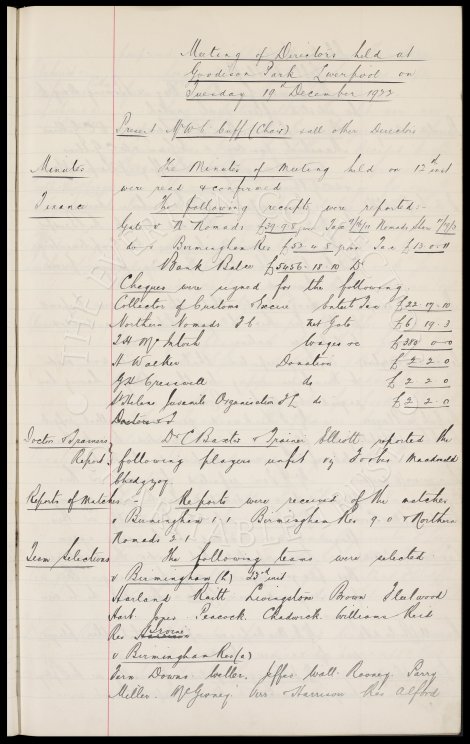 Meeting of Directors held at
Goodison Park Liverpool on
Tuesday 19th December 1922
Present Mr W C Cuff (Chair) & all other Directors
Minutes The Minutes of Meeting held on 12th inst
were read & confirmed
Finance The following receipts were reported:-
Gate v N Nomads £39.9.8 Tax Nomads Share
do v Birmingham Res £53.4.8 Tax £13.0.11
Bank Balce £5456.18.10 Dr
Cheques were signed for the following.
Collector of Customs & Excise Entert Tax £22.17.10
Northern Nomads F C Net Gate £61 19.3
T H McIntosh Wages &c £380 0-0
H Walker Donation £2.2.0
G H Cresswell do £2.2.0
St Helens Juvenile Organisation do £2.2.0
Doctors & T
Doctor & Trainers Dr C Baxter & Trainer Elliott reported the
Report. following players unfit viz Forbes Macdonald
Chedgzoy.
Reports of Matches - Reports were received of the matches
v Birmingham 1.1 Birmingham Res 9.0 & Northern
Nomads 2.1.
Team Selections The following teams were selected
v Birmingham (h) 23rd inst
Harland Raitt Livingstone Brown Fleetwood
Hart. Jones. Peacock. Chadwick. Williams Reid
Res Harrison Irvine
v Birmingham Res (a)
Fern Downs Weller. Jeffs Wall. Rooney. Parry
Miller. Orr & Harrison Res Alford